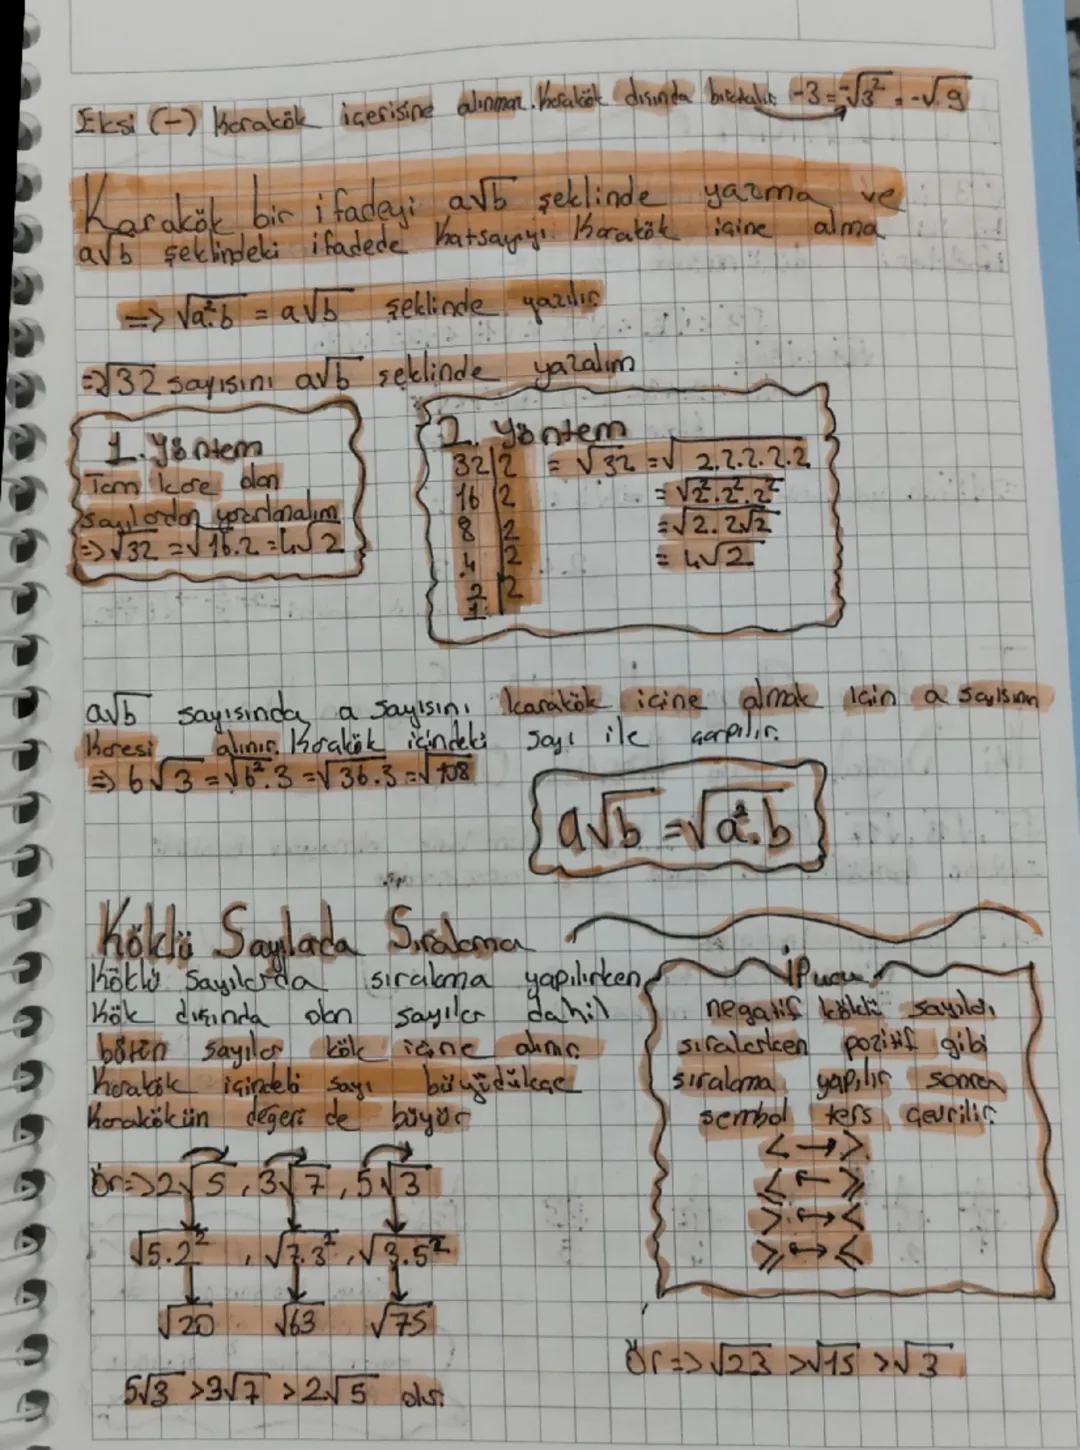 Eksi (-) Karakök içerisine alınmaz. Karakök dışında bırakılır. -3 = -√3² = -√9
Karakök bir ifadeyi a√b şeklinde yazma ve
a√b şeklindeki ifadede Katsayıyı Karakök içine alma
=> √a².b = a√b şeklinde yazılır.
=> √32 sayısını a√b şeklinde yazalım
1. Yöntem
Tam kare olan
sayılardan yararlanalım
=> √32 = √16.2 = 4√2
2. Yöntem
32 | 2 = √32 = √2.2.2.2.2
16 | 2 = √2².2².2
8 | 2 = √2.2√2
4 | 2 = 4√2
2 | 2
1
a√b sayısında a sayısını karakök içine almak için a sayısının
Karesi alınır. Karakök içindeki sayı ile çarpılır.
=> 6√3 = √6².3 = √36.3 = √108
a√b = √a².b
Köklü Sayılarda Sıralama
Köklü Sayılarda sıralama yapılırken,
Kök dışında olan sayılar dahil
bütün sayılar kök içine alınır.
Karakök içindeki sayı büyüdükçe
Karakökün değeri de büyür
Ör=> 2√5 , 3√7 , 5√3
√5.2² , √7.3² , √3.5²
√20 √63 √75
5√3 > 3√7 > 2√5 olur.
İpucu
negatif köklü sayıları
sıralarken pozitif gibi
sıralama yapılır sonra
sembol ters çevrilir.
< → >
≤ ← ≥
> ↔ <
≥ ↔ ≤
Ör => √23 > √15 > √3